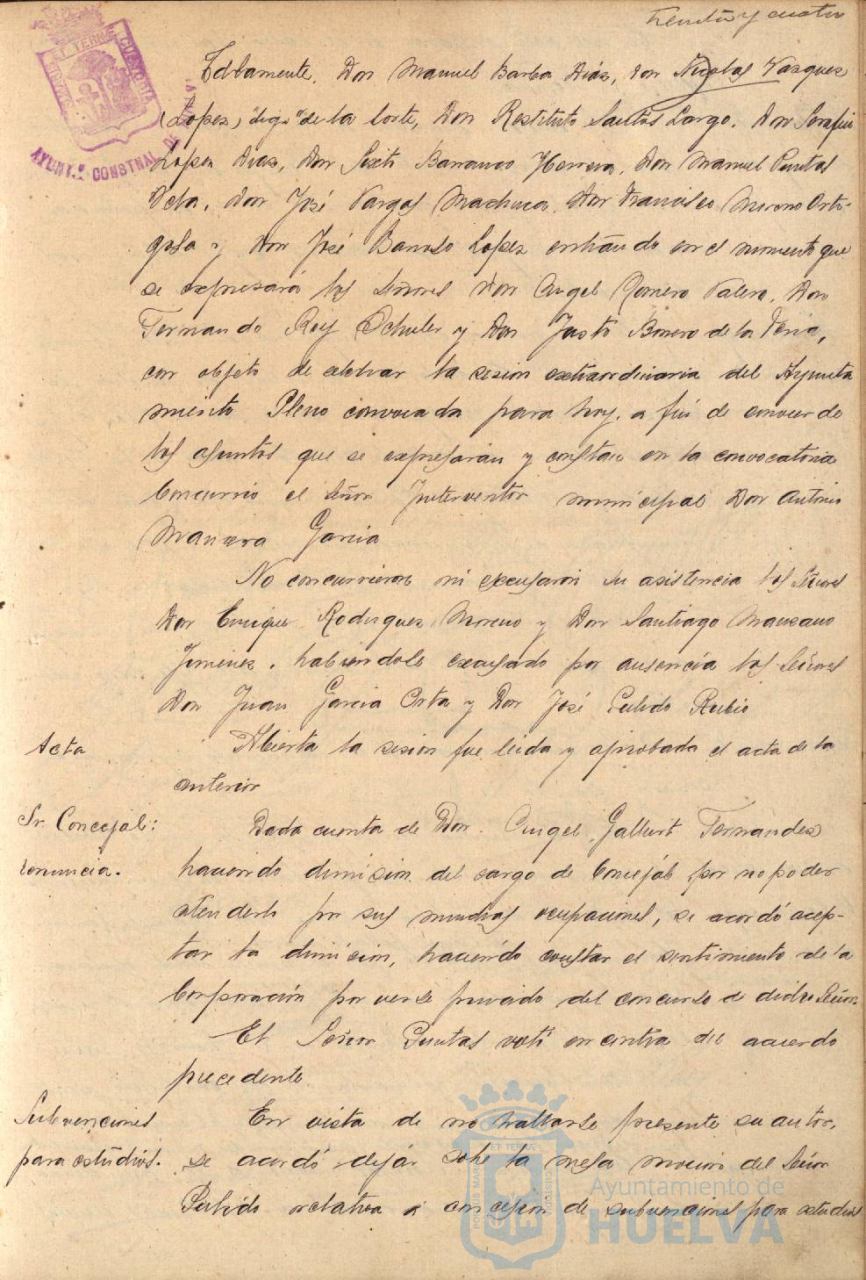 treinta y cuatro
Don Manuel Barba Días, don Nicolas Vazquez
(Lopez) "digo" de la Corte, Don Restituto Santos Largo, Don Serafin
Lopez Dias, Don Sixto Barranco Herrera, Don Manuel
Don José Vargas Machuca, Don Francisco Moreno Orta-
y Don José Barroso Lopez entrando en el momento que
se expresará los Señores Don Angel Romero Valero, Don
Fernando Rey Schuler y Don Justo Borrero de la Feria,
con objeto de celebrar la sesion extraordinaria del Ayunta
miento Pleno convocada para hoy, a fin de conocer de
los asuntos que se expresarán y constan en la convocatoria
Concurrió el Señor Interventor municipal Don Antonio
Garcia
No concurrieron ni excusaron su asistencia los Señores
Don Enrique Rodriguez Moreno y Don Santiago Manzano
Jimenez, habiendolo excusado por ausencia los Señores
Don Juan Garcia Orta y Don José Pulido Rubio
Acta
Abierta la sesion fue leida y aprobada el acta de la
anterior
Sr. Concejal:
renuncia.
Dada cuenta de Don Angel Gallurt Fernandez
haciendo dimision del cargo de Concejal por no poder
atenderlo por sus muchas ocupaciones, se acordó acep-
tar la dimision, haciendo constar el sentimiento de la
Corporación por verse privado del concurso de dicho Señor
El Señor voto en contra del acuerdo
precedente
Subvenciones
para estudios.
En vista de no hallarse presente su autor,
se acordó dejar sobre la mesa mocion del Señor
Pulido relativa a concesion de subvenciones para estudios
AYUNTº CONSTNAL DE
Ayuntamiento de
HUELVA